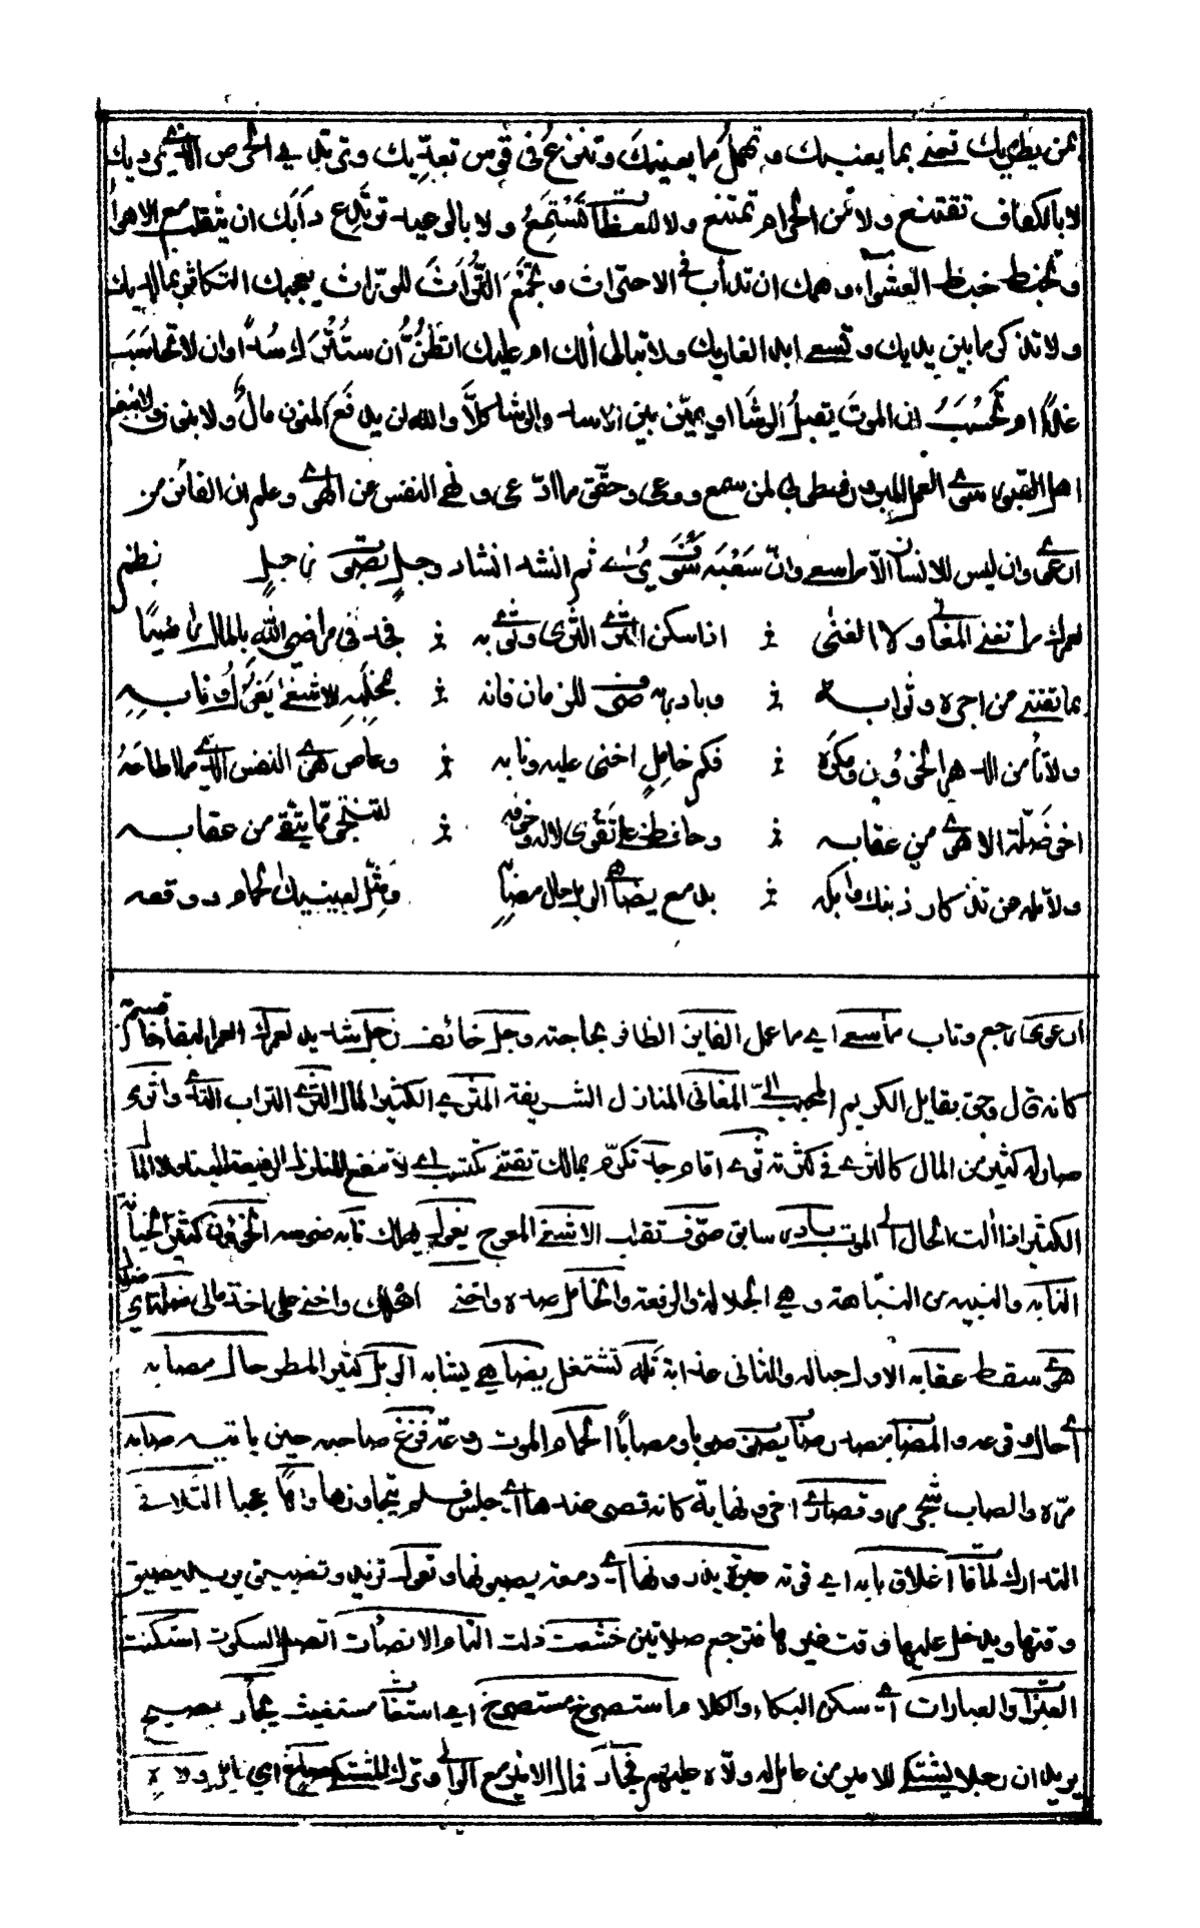 بمن يطريك تعنى بما يعنيك وتهمل ما يعنيك وتنزع في قوس تعديك وترتدي الحرص الذي يرديك
لا بالكفاف تقتنع ولا من الحرام تمتنع ولا للعظات تستمع ولا بالوعيد ترتدع دأبك ان تتقلب مع الاهواء
وتخبط خبط العشواء وهمك ان تدأب في الاحتراث وتجمع التراث للوراث يعجبك التكاثر بما لديك
ولا تذكر ما بين يديك وتسعى ابدا لغاريك ولا تبالي ألك ام عليك اتظن ان ستترك سدا وان لا تحاسب
غدا ام تحسب ان الموت يقبل الرشا او يميز بين الاسد والرشا كلا والله لن يدفع المنون مال ولا بنون ولا ينفع
اهل القبور سوى العمل المبرور فطوبى لمن سمع ووعى وحقق ما ادعى ونهى النفس عن الهوى وعلم ان الفائز من
ارعوى وان ليس للانسان الا ما سعى وان سعيه سوف يرى ثم انشد انشاد وجل بصوت زجل نظم
لعمرك ما تغني المغاني ولا الغنى اذا سكن المثري الثرى وثوى به فجد في مراضي الله بالمال راضيا
بما تقتني من اجره وثوابه وبادر به صرف الزمان فانه بمخلبه الاشغى يغول ونابه
ولا تأمن الدهر الخؤون ومكره فكم خامل اخنى عليه ونابه وعاص هوى النفس الذي ما اطاعه
اخو ضلة الا هوى من عقابه وحافظ على تقوى الاله وخوفه لتنجو مما يتقى من عقابه
ولا تله عن تذكار ذنبك وابكه بدمع يضاهي الوبل حال مصابه ومثل لعينيك الحمام ووقعه
ارعوى رجع وتاب ما سعى اي ما عمل الفايز الظافر بحاجته وجل خائف زجل شديد لعمرك العمر البقا قسم
كانه قال وحق بقايك الكريم المغاني المنازل الشريفة المثري الكثير المال الثرى التراب الندي واثرى
صار له كثير من المال كالثرى في كثرته ثوى اقام جد تكرم بمالك تقتني تكتسب اي لا تنفع المنازل الرفيعة ولا المال
الكثير اذا آلت الحال الى الموت بادر سابق صرف تقلب الاشغى المعوج يغول يهلك نابه ضرسه الخؤون كثير الخيانة
النابه والنبيه من النباهة وهي الجلالة والرفعة والخامل ضده واخنى اهلك واخنى على اخذ مالي ضلة اي
هوى سقط عقابه الاول جباله والثاني عذابه تله تشتغل يضاهي يشابه الوبل كثير المطر حال مصابه
اي حال وقوعه والمصاب مصدر صاب يصوب صوبا ومصابا الحمام الموت روعة فزع صاحبه حين ياتيه صابه
مره والصاب شجر مر وقصارى اخر ونهاية كانه قصر عندها اي حبس فلم يتجاوزها واها عجبا التلافي
التدارك
وقتها ويدخل عليها وقت غيرها فترجع صلاتين خشعت ذلت التام الانصات السكوت استكنت
العبرات والعبارات اي سكن البكاء والكلام استصرخ مستصرخ اي استغاث مستغيث يجأر يصيح
يريد ان رجلا يشتكي للامير من عامل له ولاه عليهم فجار فمال الامير مع الوالي وترك المشتكي